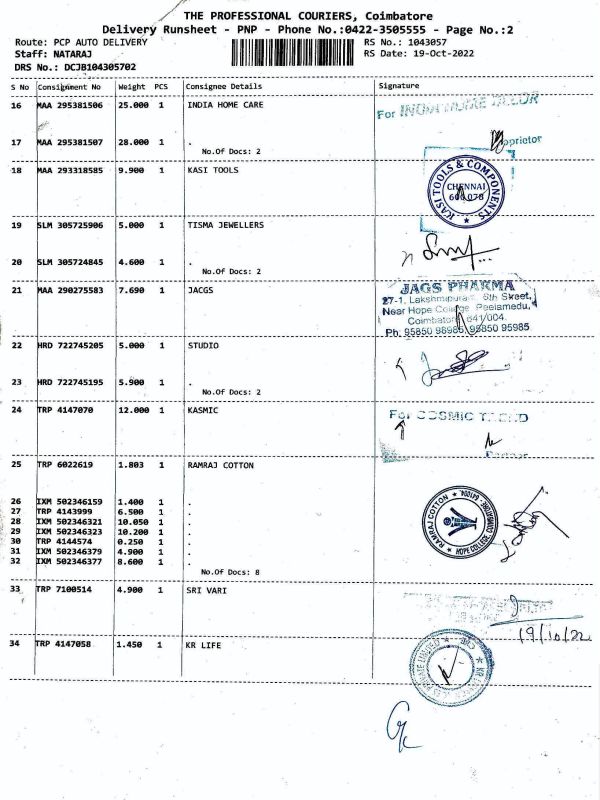 THE PROFESSIONAL COURIERS, Coimbatore
Delivery Runsheet - PNP - Phone No.:0422-3505555 - Page No.:2
Route: PCP AUTO DELIVERY RS No.: 1043057
Staff: NATARAJ RS Date: 19-Oct-2022
DRS No.: DCJB104305702
S No Consignment No Weight PCS Consignee Details Signature
16 MAA 295381506 25.000 1 INDIA HOME CARE
For INDIA HOME
17 MAA 295381507 28.000 1 .
Proprietor
No.Of Docs: 2
18 MAA 293318585 9.900 1 KASI TOOLS
KASI TOOLS & COMPONENTS
CHENNAI
600 078
19 SLM 305725906 5.000 1 TISMA JEWELLERS
20 SLM 305724845 4.600 1 .
No.Of Docs: 2
21 MAA 290275583 7.690 1 JACGS
JAGS PHARMA
27-1, Lakshmipuram 6th Street,
Near Hope College Peelamedu,
Coimbatore 641/004.
Ph: 95850 95985
22 HRD 722745205 5.000 1 STUDIO
23 HRD 722745195 5.900 1 .
No.Of Docs: 2
24 TRP 4147070 12.000 1 KASMIC
For COSMIC
25 TRP 6022619 1.803 1 RAMRAJ COTTON
26 IXM 502346159 1.400 1 .
27 TRP 4143999 6.500 1 .
28 IXM 502346321 10.050 1 .
29 IXM 502346323 10.200 1 .
30 TRP 4144574 0.250 1 .
31 IXM 502346379 4.900 1 .
32 IXM 502346377 8.600 1 .
RAMRAJ COTTON
HOPE COLLEGE
No.Of Docs: 8
33 TRP 7100514 4.900 1 SRI VARI
19/10/22
34 TRP 4147058 1.450 1 KR LIFE